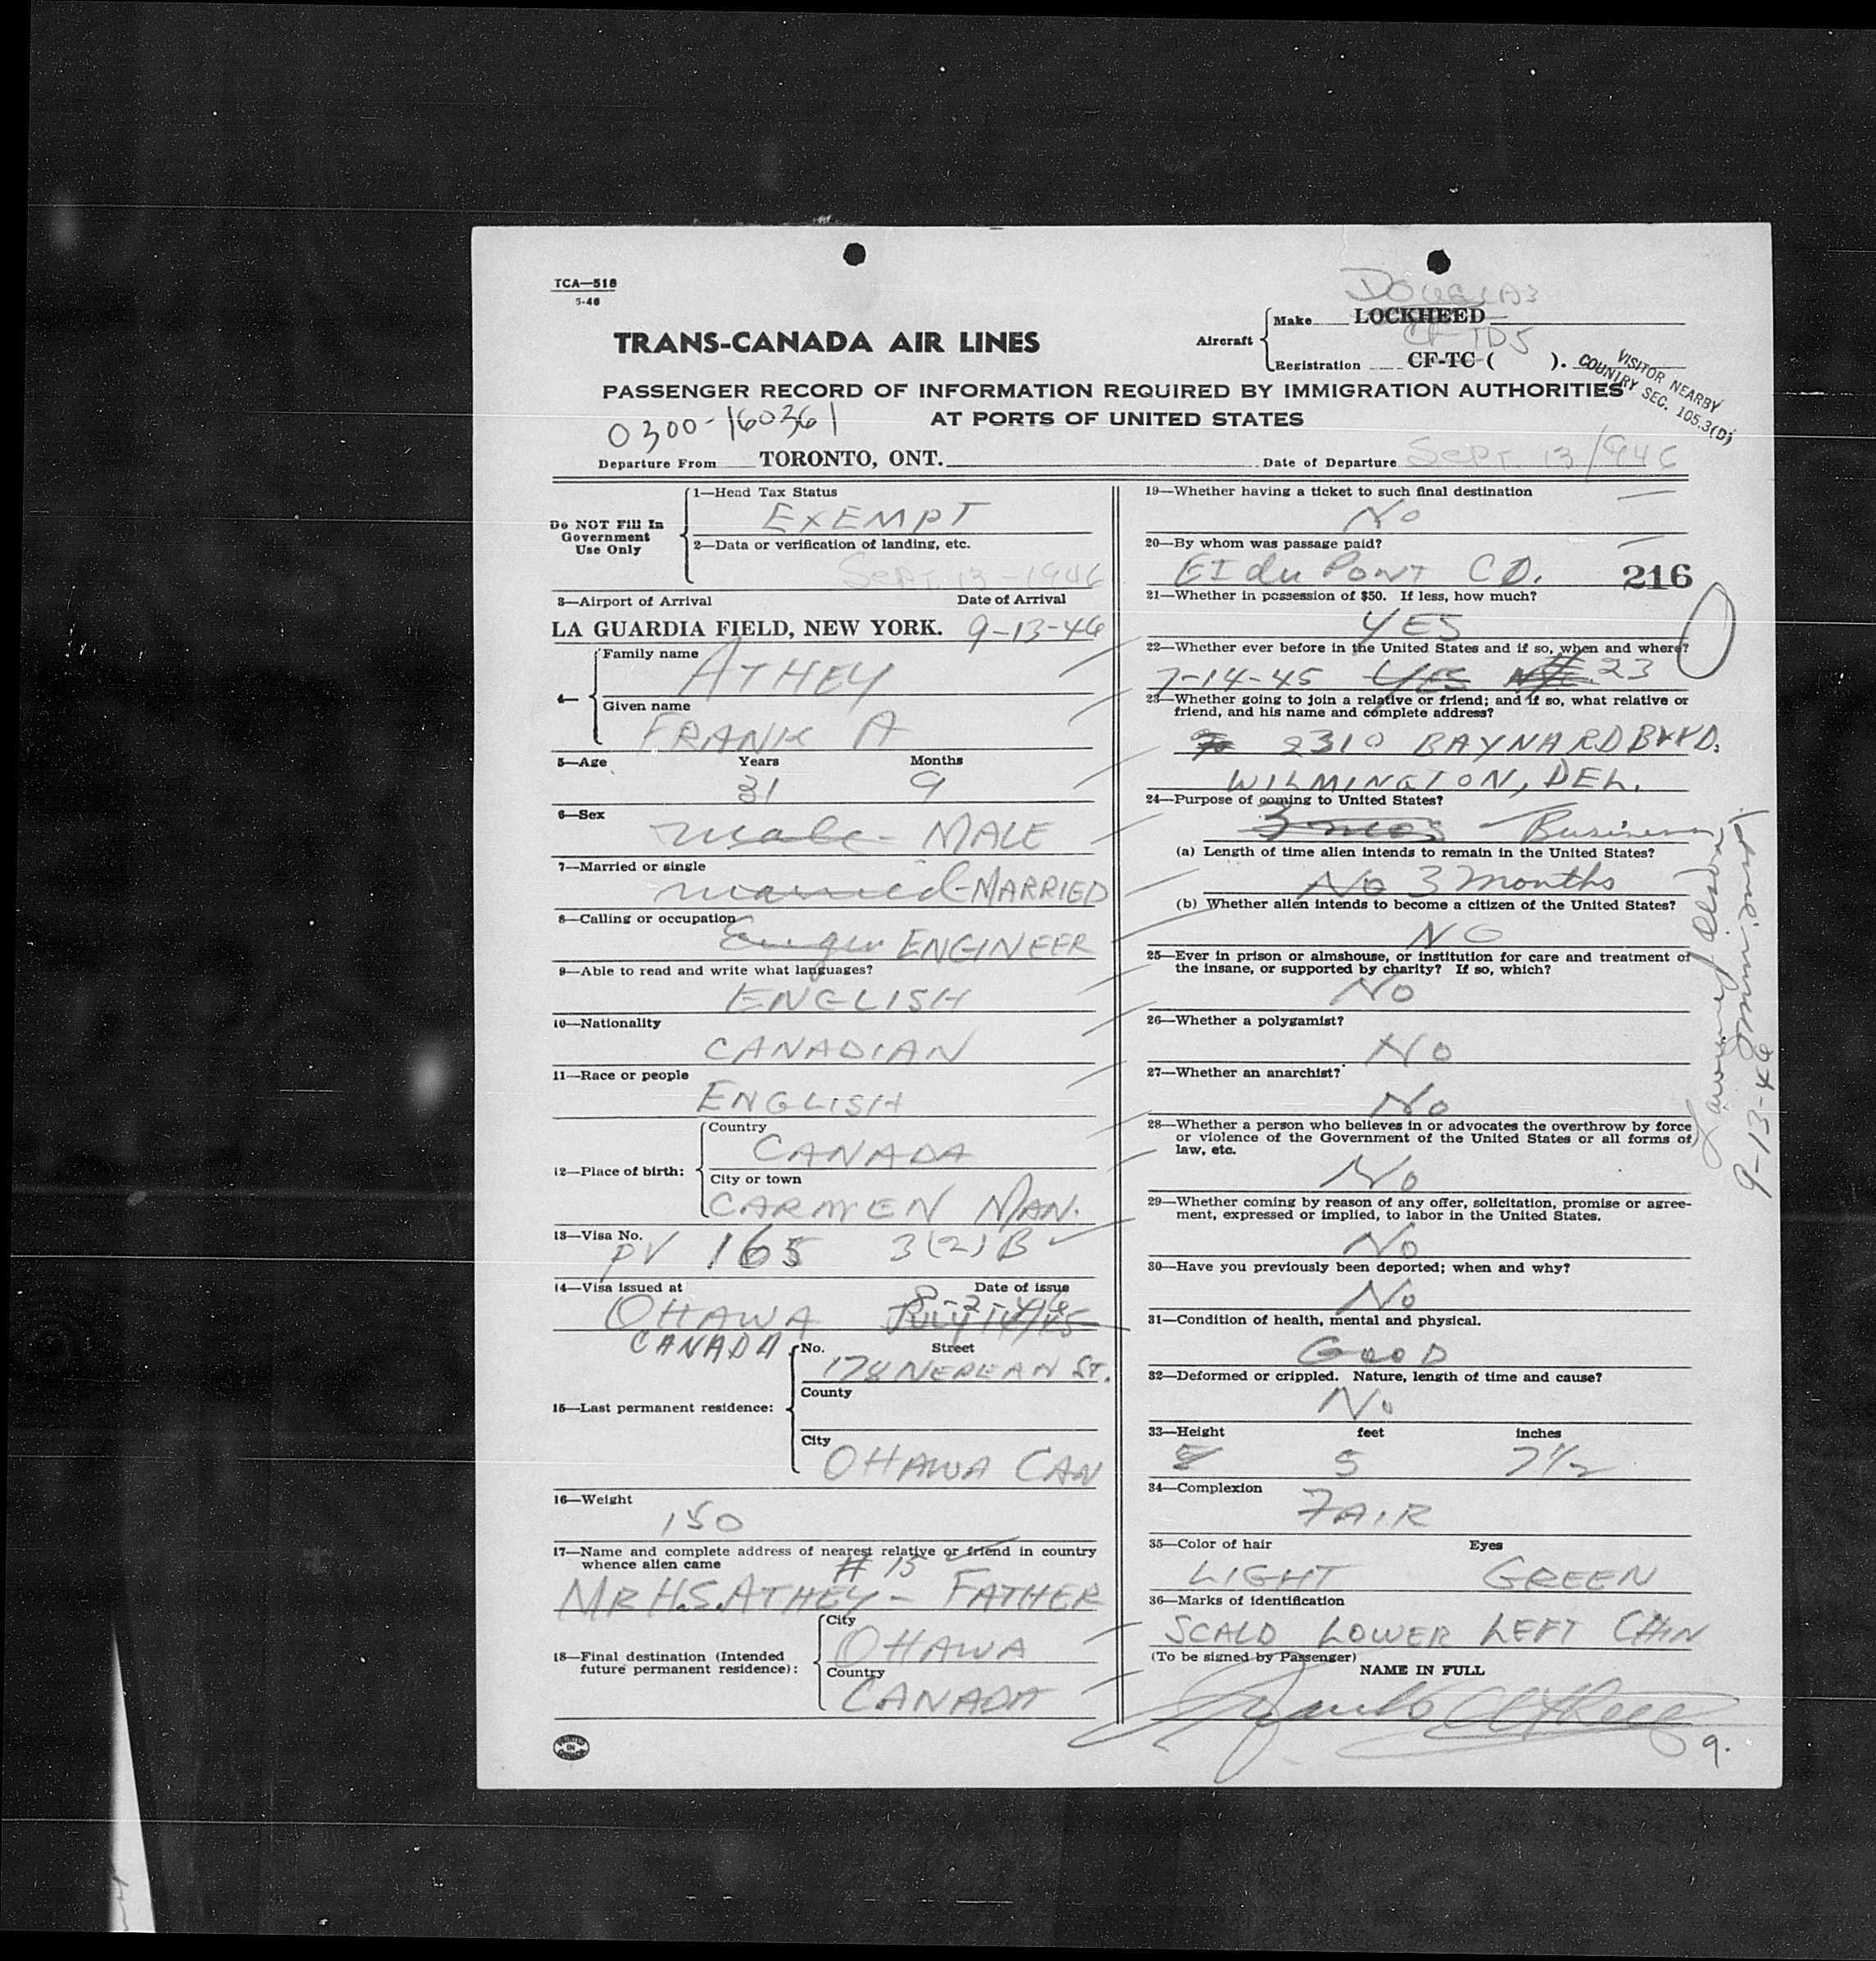 TCA—518
5-46
DOUGLAS
Aircraft Make LOCKHEED
TRANS-CANADA AIR LINES
CF TDS
Registration CF-TC ( ).
VISITOR NEARBY
COUNTRY SEC. 105.3(D)
PASSENGER RECORD OF INFORMATION REQUIRED BY IMMIGRATION AUTHORITIES
AT PORTS OF UNITED STATES
0300-160361
Departure From TORONTO, ONT. Date of Departure SEPT. 13/1946
Do NOT Fill In
Government
Use Only
1—Head Tax Status
EXEMPT
2—Data or verification of landing, etc.
SEPT. 13-1946
3—Airport of Arrival Date of Arrival
LA GUARDIA FIELD, NEW YORK. 9-13-46
4—
Family name
ATHEY
Given name
FRANK A
5—Age Years Months
31 9
6—Sex
male MALE
7—Married or single
married MARRIED
8—Calling or occupation
ENGINEER
9—Able to read and write what languages?
ENGLISH
10—Nationality
CANADIAN
11—Race or people
ENGLISH
12—Place of birth:
Country
CANADA
City or town
CARMEN MAN.
13—Visa No.
PV 165 3(2)B
14—Visa issued at Date of issue
8-2-46
OTTAWA JULY 14/45
CANADA
15—Last permanent residence:
No. Street
178 NEPEAN ST.
County
City
OTTAWA CAN
16—Weight
150
17—Name and complete address of nearest relative or friend in country
whence alien came
# 15
MR H.S. ATHEY - FATHER
18—Final destination (Intended
future permanent residence):
City
OTTAWA
Country
CANADA
19—Whether having a ticket to such final destination
NO
20—By whom was passage paid?
EI du PONT CO. 216
21—Whether in possession of $50. If less, how much?
YES
22—Whether ever before in the United States and if so, when and where?
7-14-45 YES # 23
23—Whether going to join a relative or friend; and if so, what relative or
friend, and his name and complete address?
2310 BAYNARD BLVD.
WILMINGTON, DEL.
24—Purpose of coming to United States?
3 mos Business
(a) Length of time alien intends to remain in the United States?
No 3 Months
(b) Whether alien intends to become a citizen of the United States?
NO
25—Ever in prison or almshouse, or institution for care and treatment of
the insane, or supported by charity? If so, which?
NO
26—Whether a polygamist?
NO
27—Whether an anarchist?
No
28—Whether a person who believes in or advocates the overthrow by force
or violence of the Government of the United States or all forms of
law, etc.
No
29—Whether coming by reason of any offer, solicitation, promise or agree-
ment, expressed or implied, to labor in the United States.
No
30—Have you previously been deported; when and why?
No
31—Condition of health, mental and physical.
GOOD
32—Deformed or crippled. Nature, length of time and cause?
No
33—Height feet inches
5 7½
34—Complexion
FAIR
35—Color of hair Eyes
LIGHT GREEN
36—Marks of identification
SCALD LOWER LEFT CHIN
(To be signed by Passenger)
NAME IN FULL
Frank A Athey
9.
9-13-46